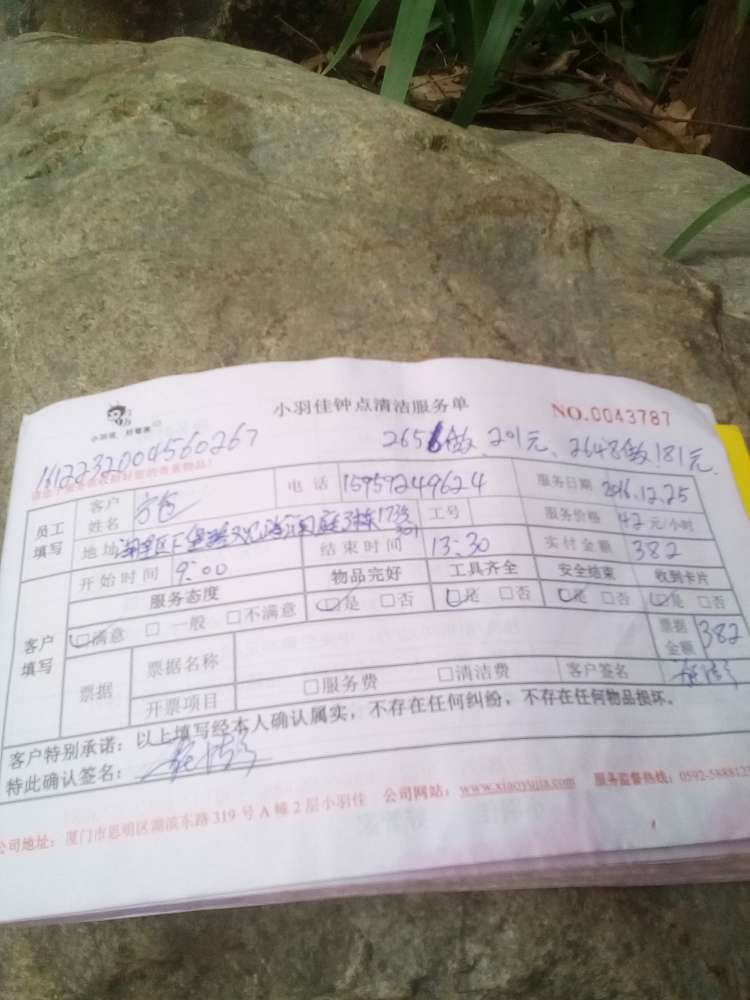 小羽佳钟点清洁服务单
NO.0043787
1612232004560267
2656做201元、2648做181元
员工填写 客户姓名 电话 15959249624 服务日期 2016.12.25
地址 工号 服务价格 42元/小时
开始时间 9:00 结束时间 13:30 实付金额 382
客户填写 服务态度 物品完好 工具齐全 安全结束 收到卡片
□满意 □一般 □不满意 □是 □否 □是 □否 □是 □否 □是 □否
票据 票据名称 票据金额 382
开票项目 □服务费 □清洁费 客户签名
客户特别承诺：以上填写经本人确认属实，不存在任何纠纷，不存在任何物品损坏。
特此确认签名：
公司地址：厦门市思明区湖滨东路319号A幢2层小羽佳 公司网站：www.xiaoyujia.com 服务监督热线：0592-5888127